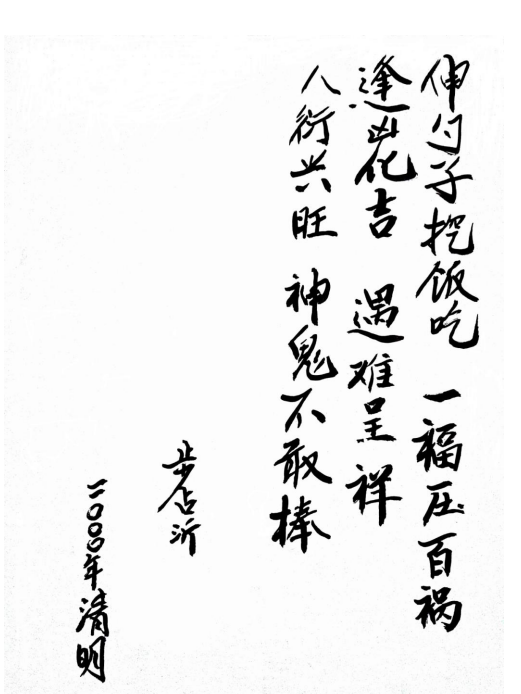 伸勺子挖饭吃 一福压百祸
逢凶化吉 遇难呈祥
人衍兴旺 神鬼不敢棒
步占沂
二〇〇〇年清明